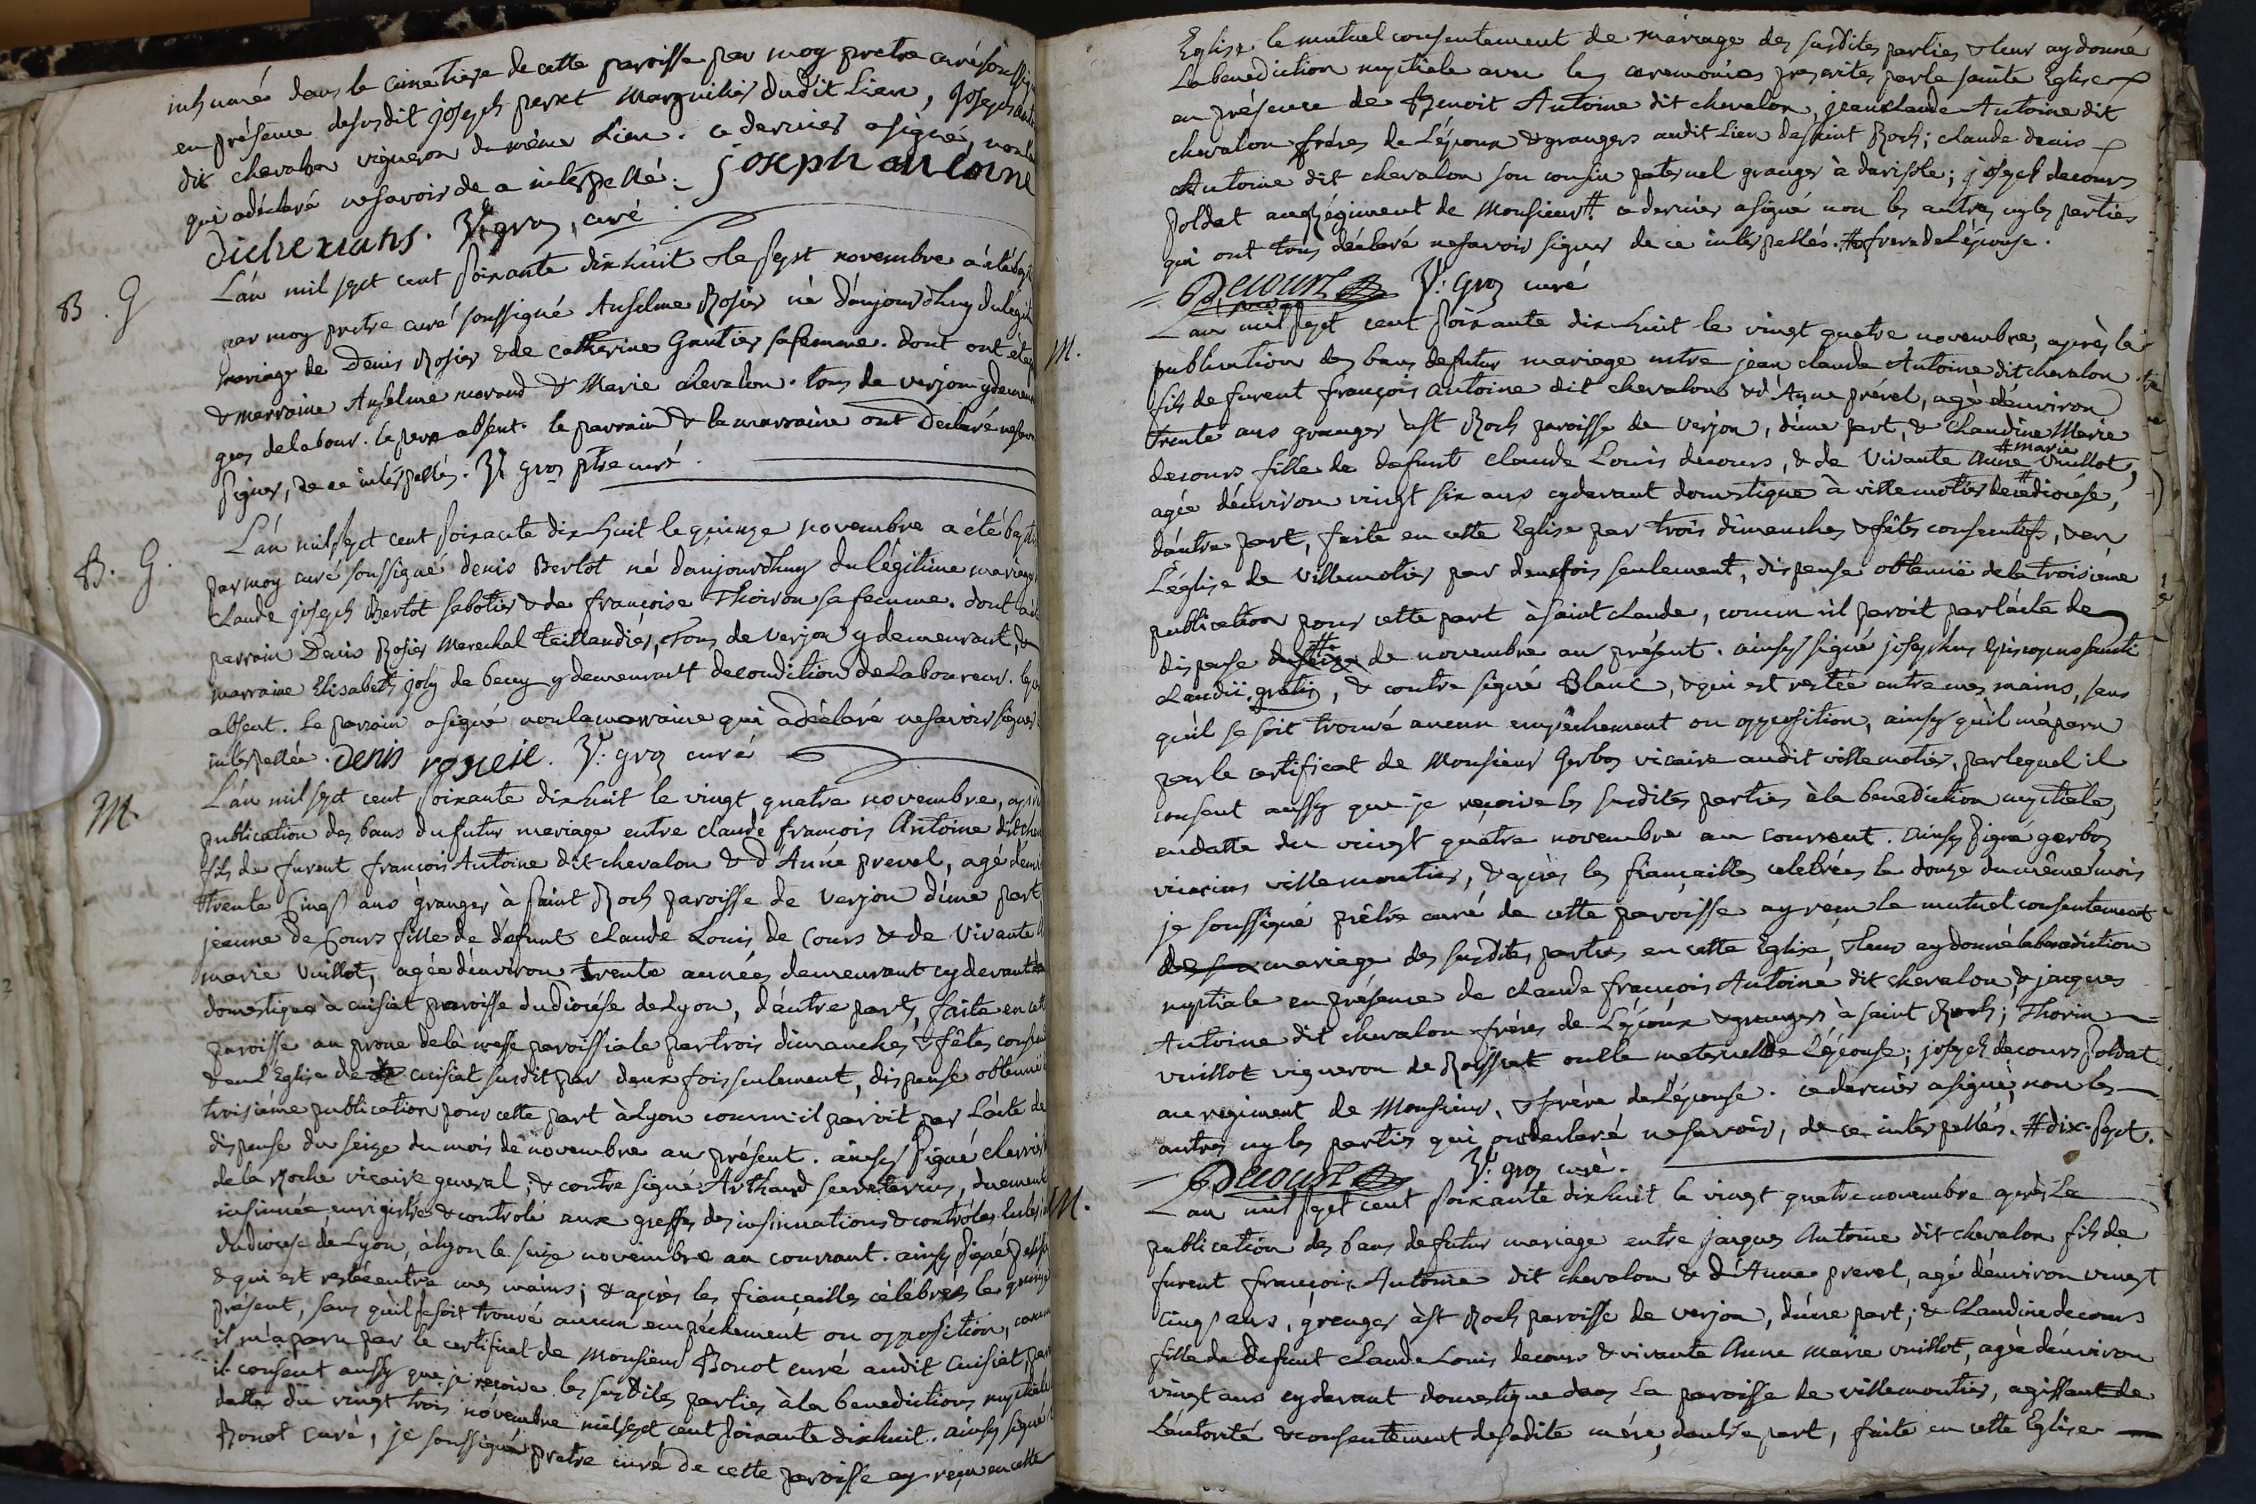 inhumé dans le cimetiere de cette paroisse par moy pretre curé soussig
en présence desusdit joseph perret Marguilier dudit Lieu, Joseph anto
dit chevalon vigneron du même Lieu. ce dernier a signé, non le
qui a déclaré ne savoir de ce interpellé. joseph antoine
dicherians. V. gros, curé
B. G
L'an mil sept cent soixante dix huit & le sept novembre a été bapt
par moy pretre curé soussigné Anselme Rosier né d'aujourdhuy du legit
mariage de Denis Rosier & de Catherine Gautier sa femme. dont ont été
& marraine Anselme morand & Marie chevalon. tous de verjon y demeur
gers de labour. le pere absent. le parrain & la marraine ont declaré ne savoir
signer, de ce interpellés. V. gros ptre curé.
B. G.
L'an mil sept cent soixante dix huit le quinze novembre a été bapti
par moy curé soussigné denis Bertot né d'aujourdhuy du légitime mariage
Claude joseph Bertot sabotier & de françoise Thoiron sa femme. dont a été
parrain Denis Rosier Marechal taillandier, tous de verjon y demeurant, &
marraine Elisabeth joly de beny y demeurant de condition de Laboureur. le per
absent. le parrain a signé non la marraine qui a déclaré ne savoir signer
interpellée. denis roseir. V. gros curé
M.
L'an mil sept cent soixante dix huit le vingt quatre novembre, aprés
publication des bans du futur mariage entre claude françois Antoine dit chev
fils de furent françois Antoine dit chevalon & d'Anne prevel, agé d'env
trente cinq ans granger à saint Roch paroisse de verjon d'une part
jeanne de Cours fille de défunt claude Louis de Cours & de Vivante
marie Vuillot, agée d'environ trente années demeurant cy devant
domestique a cuisiat paroisse du diocése de Lyon, d'autre part, faite en cett
paroisse au prone de la messe paroissiale par trois dimanches & fêtes consec
& en l'Eglise de cuisiat susdit par deux fois seulement, dispense obtenüe
troisiéme publication pour cette part à Lyon comme il paroit par l'acte de
dispense du seize du mois de novembre an présent. ainsy signé
de la Roche vicaire general; & contre signé Arthaud secretarius, duement
insinuée enrigistré & controlé aux greffes des insinuations & contrôles
du diocése de Lyon, à lyon le seize novembre an courrant. ainsy signé
& qui est restée entre mes mains; & aprés les fiançailles célébrées le quinze
présent, sans qu'il se soit trouvé aucun empéchement ou opposition, comm
il m'a paru par le certificat de Monsieur Bonot curé audit Cuisiat, par
il consent aussy que je reçoive les susdites parties à la benediction nuptiale
datte du vingt trois novembre mil sept cent soixante dix huit. ainsy signé
Bonot curé, je soussigné pretre curé de cette paroisse ay reçu en cette
Eglise le mutuel consentement de mariage des susdites parties & leur ay donné
La benediction nuptiale avec les ceremonies prescrites par la sainte Eglise
en présence de Benoit Antoine dit chevalon, jean claude Antoine dit
chevalon fréres de L'époux & grangers audit Lieu de saint Roch; claude denis
Antoine dit chevalon son cousin paternel granger à darisole; joseph decours
soldat au Régiment de Monsieur # ce dernier a signé non les autres ny les parties
qui ont tous déclaré ne savoir signer de ce interpellés. # & frere de L'épouse.
Decours V. gros curé
M.
L'an mil sept cent soixante dix huit le vingt quatre novembre, aprés la
publication des bans de futur mariage entre jean claude Antoine dit chevalon
fils de furent françois antoine dit chevalon & d'Anne prével, agé d'environ
trente ans granger à St Roch paroisse de verjon, d'une part, & Claudine Marie
decours fille de defunt claude Louis decours, & de Vivante Anne # marie Vuillot,
agée d'environ vingt six ans cy devant domestique à villemotier de ce diocése,
d'autre part, faite en cette Eglise par trois dimanches & fêtes consecutifs, & en
L'église de villemotier par deux fois seulement, dispense obtenüe de la troisieme
publication pour cette part à saint claude, comme il paroit par l'acte de
dispense du seize # de novembre an présent. ainsy signé josephus Episcopus sancti
claudii. gratis, & contre signé Blanc, & qui est restée entre mes mains, sans
qu'il se soit trouvé aucun empêchement ou opposition, ainsy qu'il m'a paru
par le certificat de Monsieur Gerboz vicaire audit villemotier, par lequel il
consent aussy que je reçoive les susdites parties à la benediction nuptiale
en datte du vingt quatre novembre an courrent. ainsy signé gerboz
vicarius villemoutier, & aprés les fiançailles celebrées le douze du même mois
je soussigné prêtre curé de cette paroisse ay reçu le mutuel consentement
de mariage des susdites parties en cette Eglise, & leur ay donné la benediction
nuptiale en présence de claude françois Antoine dit chevalon, & jacques
Antoine dit chevalon fréres de L'époux & grangers à saint Roch; Thorin
vuillot vigneron de Roissiat oncle maternel de L'épouse; joseph decours soldat
au regiment de Monsieur, & frére de L'épouse. ce dernier a signé, non les
autres ny les parties qui ont declaré ne savoir, de ce interpellés. # dix-sept.
Decours V. gros curé.
M.
L'an mil sept cent soixante dix huit le vingt quatre novembre aprés La
publication des bans de futur mariage entre jacques Antoine dit chevalon fils de
furent françois Antoine dit chevalon & d'Anne prevel, agé d'environ vingt
cinq ans, granger à St Roch paroisse de verjon, d'une part; & Claudine decours
fille de defunt claude Louis decours & vivante Anne marie vuillot, agée d'environ
vingt ans cy devant domestique dans la paroisse de villemoutier, agissant de
L'autorité & consentement de sadite mére, d'autre part, faite en cette Eglise